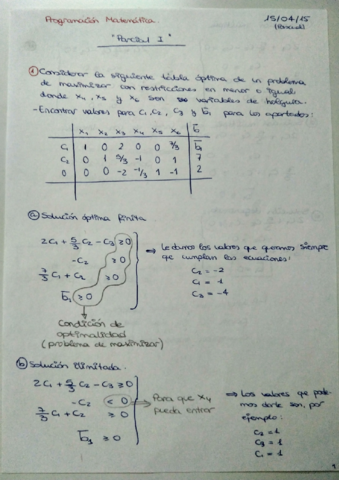 Programación Matemática.
15/04/15
"Parcial 1"
① Considerar la siguiente tabla óptima de un problema
de maximizar con restricciones en menor o igual
donde x₄, x₅ y x₆ son variables de holgura.
- Encontrar valores para C₁, C₂, C₃ y b̄₁ para los apartados:
x₁ x₂ x₃ x₄ x₅ x₆ b̄
C₁ 1 0 2 0 0 7/3 b̄₁
C₂ 0 1 5/3 -1 0 1 7
0 0 0 -2 -1/3 1 -1 2
ⓐ Solución óptima finita
2C₁ + 5/3 C₂ - C₃ ≥ 0
-C₂ ≥ 0
7/3 C₁ + C₂ ≥ 0
b̄₁ ≥ 0
⇒ Le damos los valores que queramos siempre
que cumplan las ecuaciones:
C₂ = -2
C₁ = 1
C₃ = -4
Condición de
optimalidad
(problema de maximizar)
ⓑ Solución Ilimitada
2C₁ + 5/3 C₂ - C₃ ≥ 0
-C₂ < 0
7/3 C₁ + C₂ ≥ 0
≥ 0
Para que x₄
pueda entrar
⇒ Los valores que pode-
mos darle son, por
ejemplo:
C₂ = 1
C₃ = 1
C₁ = 1
1